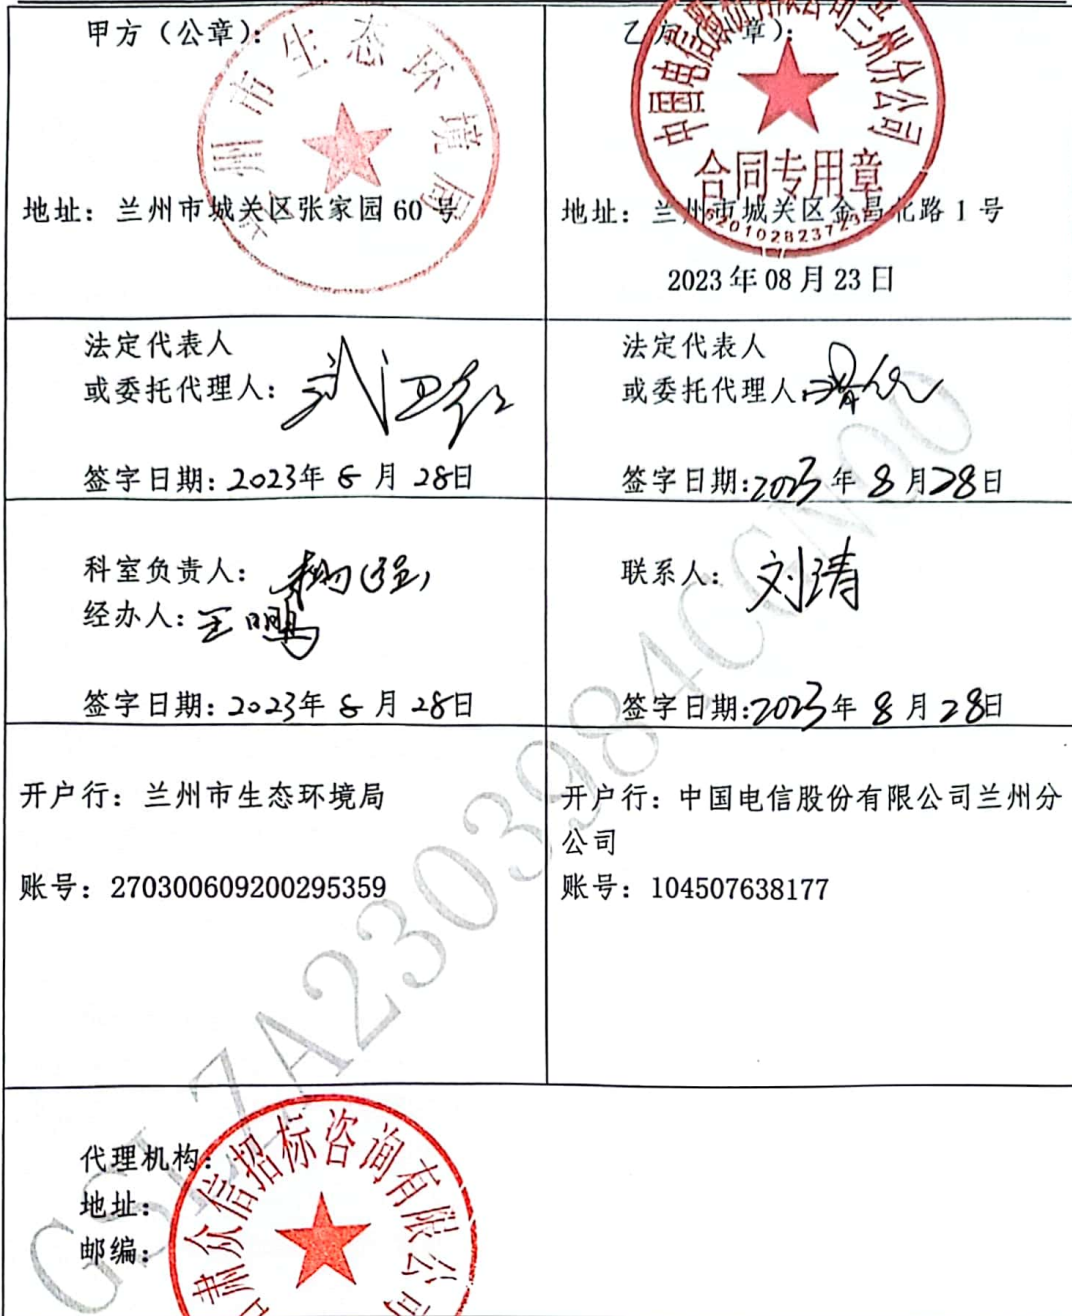 甲方（公章）：
兰州市生态环境局
地址：兰州市城关区张家园 60 号
乙方 章）：
中国电信股份有限公司兰州分公司
合同专用章
地址：兰州市城关区金昌北路 1 号
2023 年 08 月 23 日
法定代表人
或委托代理人：
签字日期：2023年 8 月 28日
法定代表人
或委托代理人：
签字日期：2023 年 8 月 28日
科室负责人：
经办人：王鹏
签字日期：2023年 8 月 28日
联系人：刘清
签字日期：2023年 8 月 28日
开户行：兰州市生态环境局
账号：270300609200295359
开户行：中国电信股份有限公司兰州分
公司
账号：104507638177
代理机构：
地址：
邮编：
肃众信招标咨询有限公司